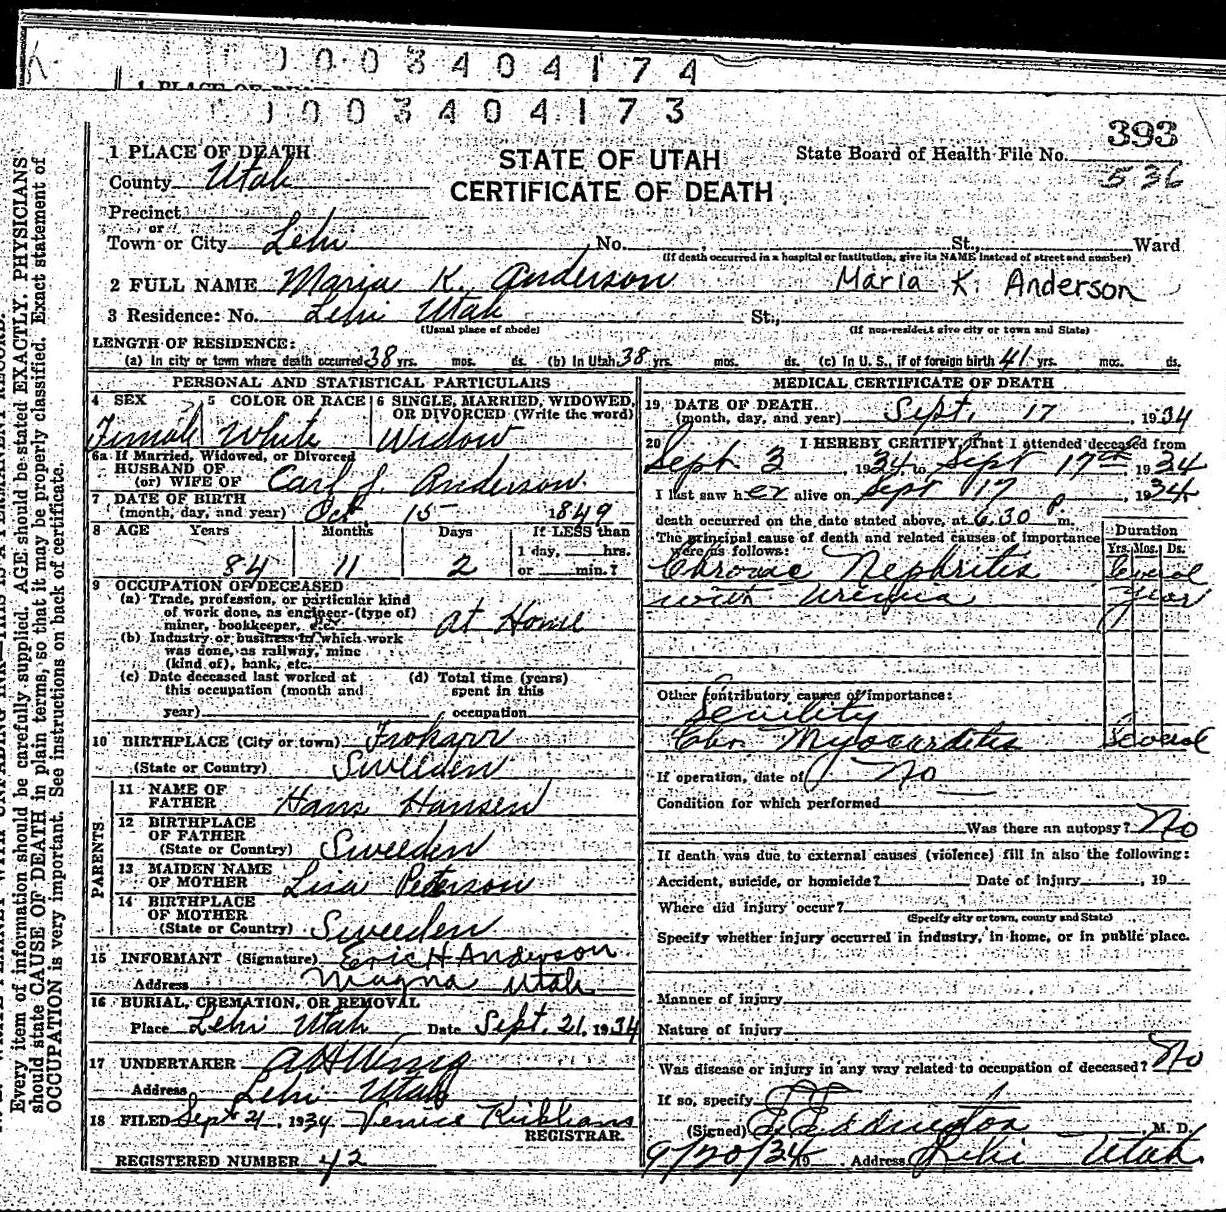 1003404174
1 PLACE OF DEA
1003404173
393
1 PLACE OF DEATH
STATE OF UTAH
State Board of Health File No.
536
County Utah
CERTIFICATE OF DEATH
Precinct
or
Town or City Lehi No. St., Ward
(If death occurred in a hospital or institution, give its NAME instead of street and number)
2 FULL NAME Maria K. Anderson Maria K. Anderson
3 Residence: No. Lehi Utah St.,
(Usual place of abode) (If non-resident give city or town and State)
LENGTH OF RESIDENCE:
(a) In city or town where death occurred 38 yrs. mos. ds. (b) In Utah 38 yrs. mos. ds. (c) In U. S., if of foreign birth 41 yrs. mos. ds.
PERSONAL AND STATISTICAL PARTICULARS
4 SEX 5 COLOR OR RACE 6 SINGLE, MARRIED, WIDOWED,
OR DIVORCED (Write the word)
Female White Widow
6a If Married, Widowed, or Divorced
HUSBAND OF
(or) WIFE OF Carl J. Anderson
7 DATE OF BIRTH
(month, day, and year) Oct 15 1849
8 AGE Years Months Days If LESS than
1 day, hrs.
84 11 2 or min.?
9 OCCUPATION OF DECEASED
(a) Trade, profession, or particular kind
of work done, as engineer (type of)
miner, bookkeeper, etc. at Home
(b) Industry or business in which work
was done, as railway, mine
(kind of), bank, etc.
(c) Date deceased last worked at (d) Total time (years)
this occupation (month and spent in this
year) occupation
10 BIRTHPLACE (City or town)
(State or Country) Sweeden
11 NAME OF
FATHER Hans Hansen
12 BIRTHPLACE
OF FATHER
(State or Country) Sweeden
PARENTS
13 MAIDEN NAME
OF MOTHER Lisa Peterson
14 BIRTHPLACE
OF MOTHER
(State or Country) Sweeden
15 INFORMANT (Signature) Eric H Anderson
Address Magna Utah
16 BURIAL, CREMATION, OR REMOVAL
Place Lehi Utah Date Sept. 21, 1934
17 UNDERTAKER A H Wing
Address Lehi Utah
18 FILED Sept 21, 1934
REGISTRAR.
REGISTERED NUMBER 42
MEDICAL CERTIFICATE OF DEATH
19 DATE OF DEATH
(month, day, and year) Sept. 17, 1934
20 I HEREBY CERTIFY, That I attended deceased from
Sept 3, 1934, to Sept 17th, 1934
I last saw her alive on Sept 17, 1934
death occurred on the date stated above, at 6.30 p m.
The principal cause of death and related causes of importance
were as follows:
Duration
Yrs. Mos. Ds.
Chronic Nephritis
with Uremia
Other contributory causes of importance:
Senility
Chr. Myocarditis Several
If operation, date of No
Condition for which performed
Was there an autopsy? No
If death was due to external causes (violence) fill in also the following:
Accident, suicide, or homicide? Date of injury , 19
Where did injury occur?
(Specify city or town, county and State)
Specify whether injury occurred in industry, in home, or in public place.
Manner of injury
Nature of injury
Was disease or injury in any way related to occupation of deceased? No
If so, specify
(Signed) E Eddington, M. D.
9/20/34 Address Lehi Utah
Every item of information should be carefully supplied. AGE should be stated EXACTLY. PHYSICIANS
should state CAUSE OF DEATH in plain terms, so that it may be properly classified. Exact statement of
OCCUPATION is very important. See instructions on back of certificate.